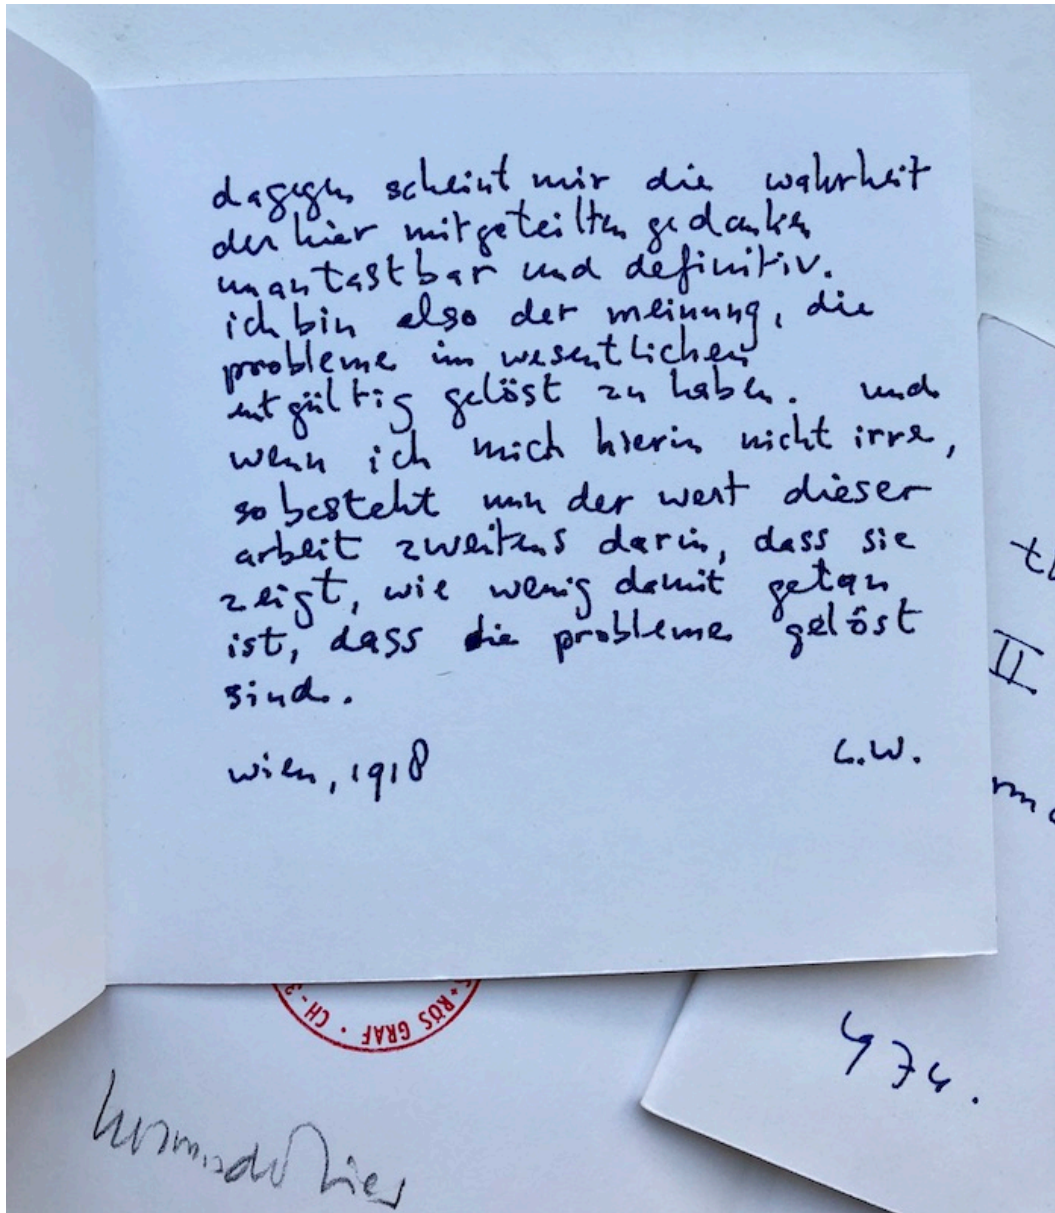 dagegen scheint mir die wahrheit
der hier mitgeteilten gedanken
unantastbar und definitiv.
ich bin also der meinung, die
probleme im wesentlichen
entgültig gelöst zu haben. und
wenn ich mich hierin nicht irre,
so besteht nun der wert dieser
arbeit zweitens darin, dass sie
zeigt, wie wenig damit getan
ist, dass die probleme gelöst
sind.
wien, 1918
L.W.
II
RÖS GRAF · CH-
474.